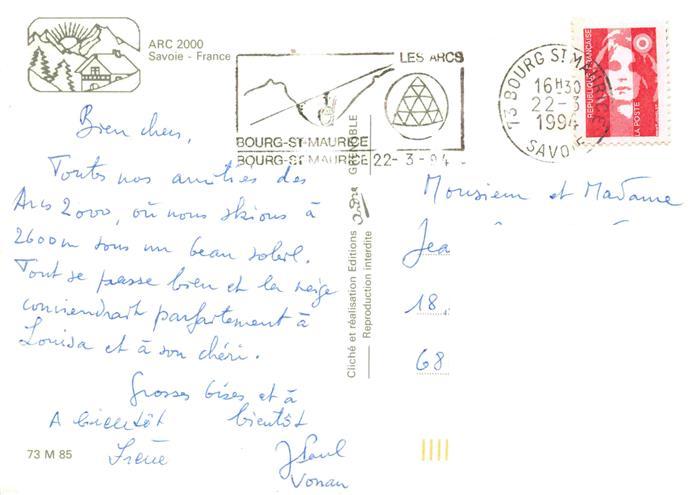 ARC 2000
Savoie - France
LES ARCS
BOURG-ST-MAURICE
BOURG-ST-MAURICE 22-3-94
73 BOURG ST MAURICE
16H30
22-3
1994
SAVOIE
RÉPUBLIQUE FRANÇAISE
LA POSTE
Bien chers,
Toutes nos amitiés des
Arcs 2000, où nous skions à
2600m sous un beau soleil.
Tout se passe bien et la neige
conviendrait parfaitement à
Louisa et à son chéri.
Grosses bises et à
bientôt
A bientôt
Irène
J Paul
Vonau
73 M 85
Cliché et réalisation Editions GRENOBLE
Reproduction interdite
Monsieur et Madame
Jea
18
68